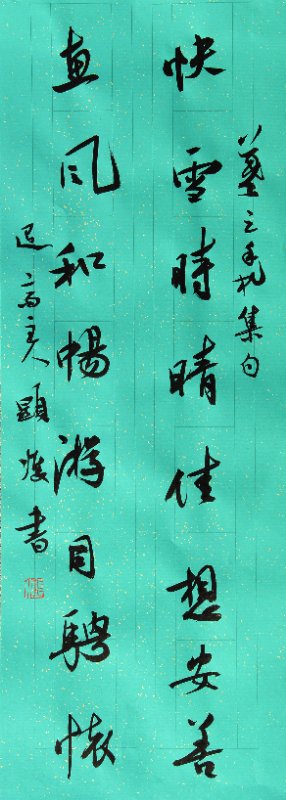 羲之手札集句
快雪時晴佳想安善
惠風和暢游目騁懷
高主人顕書